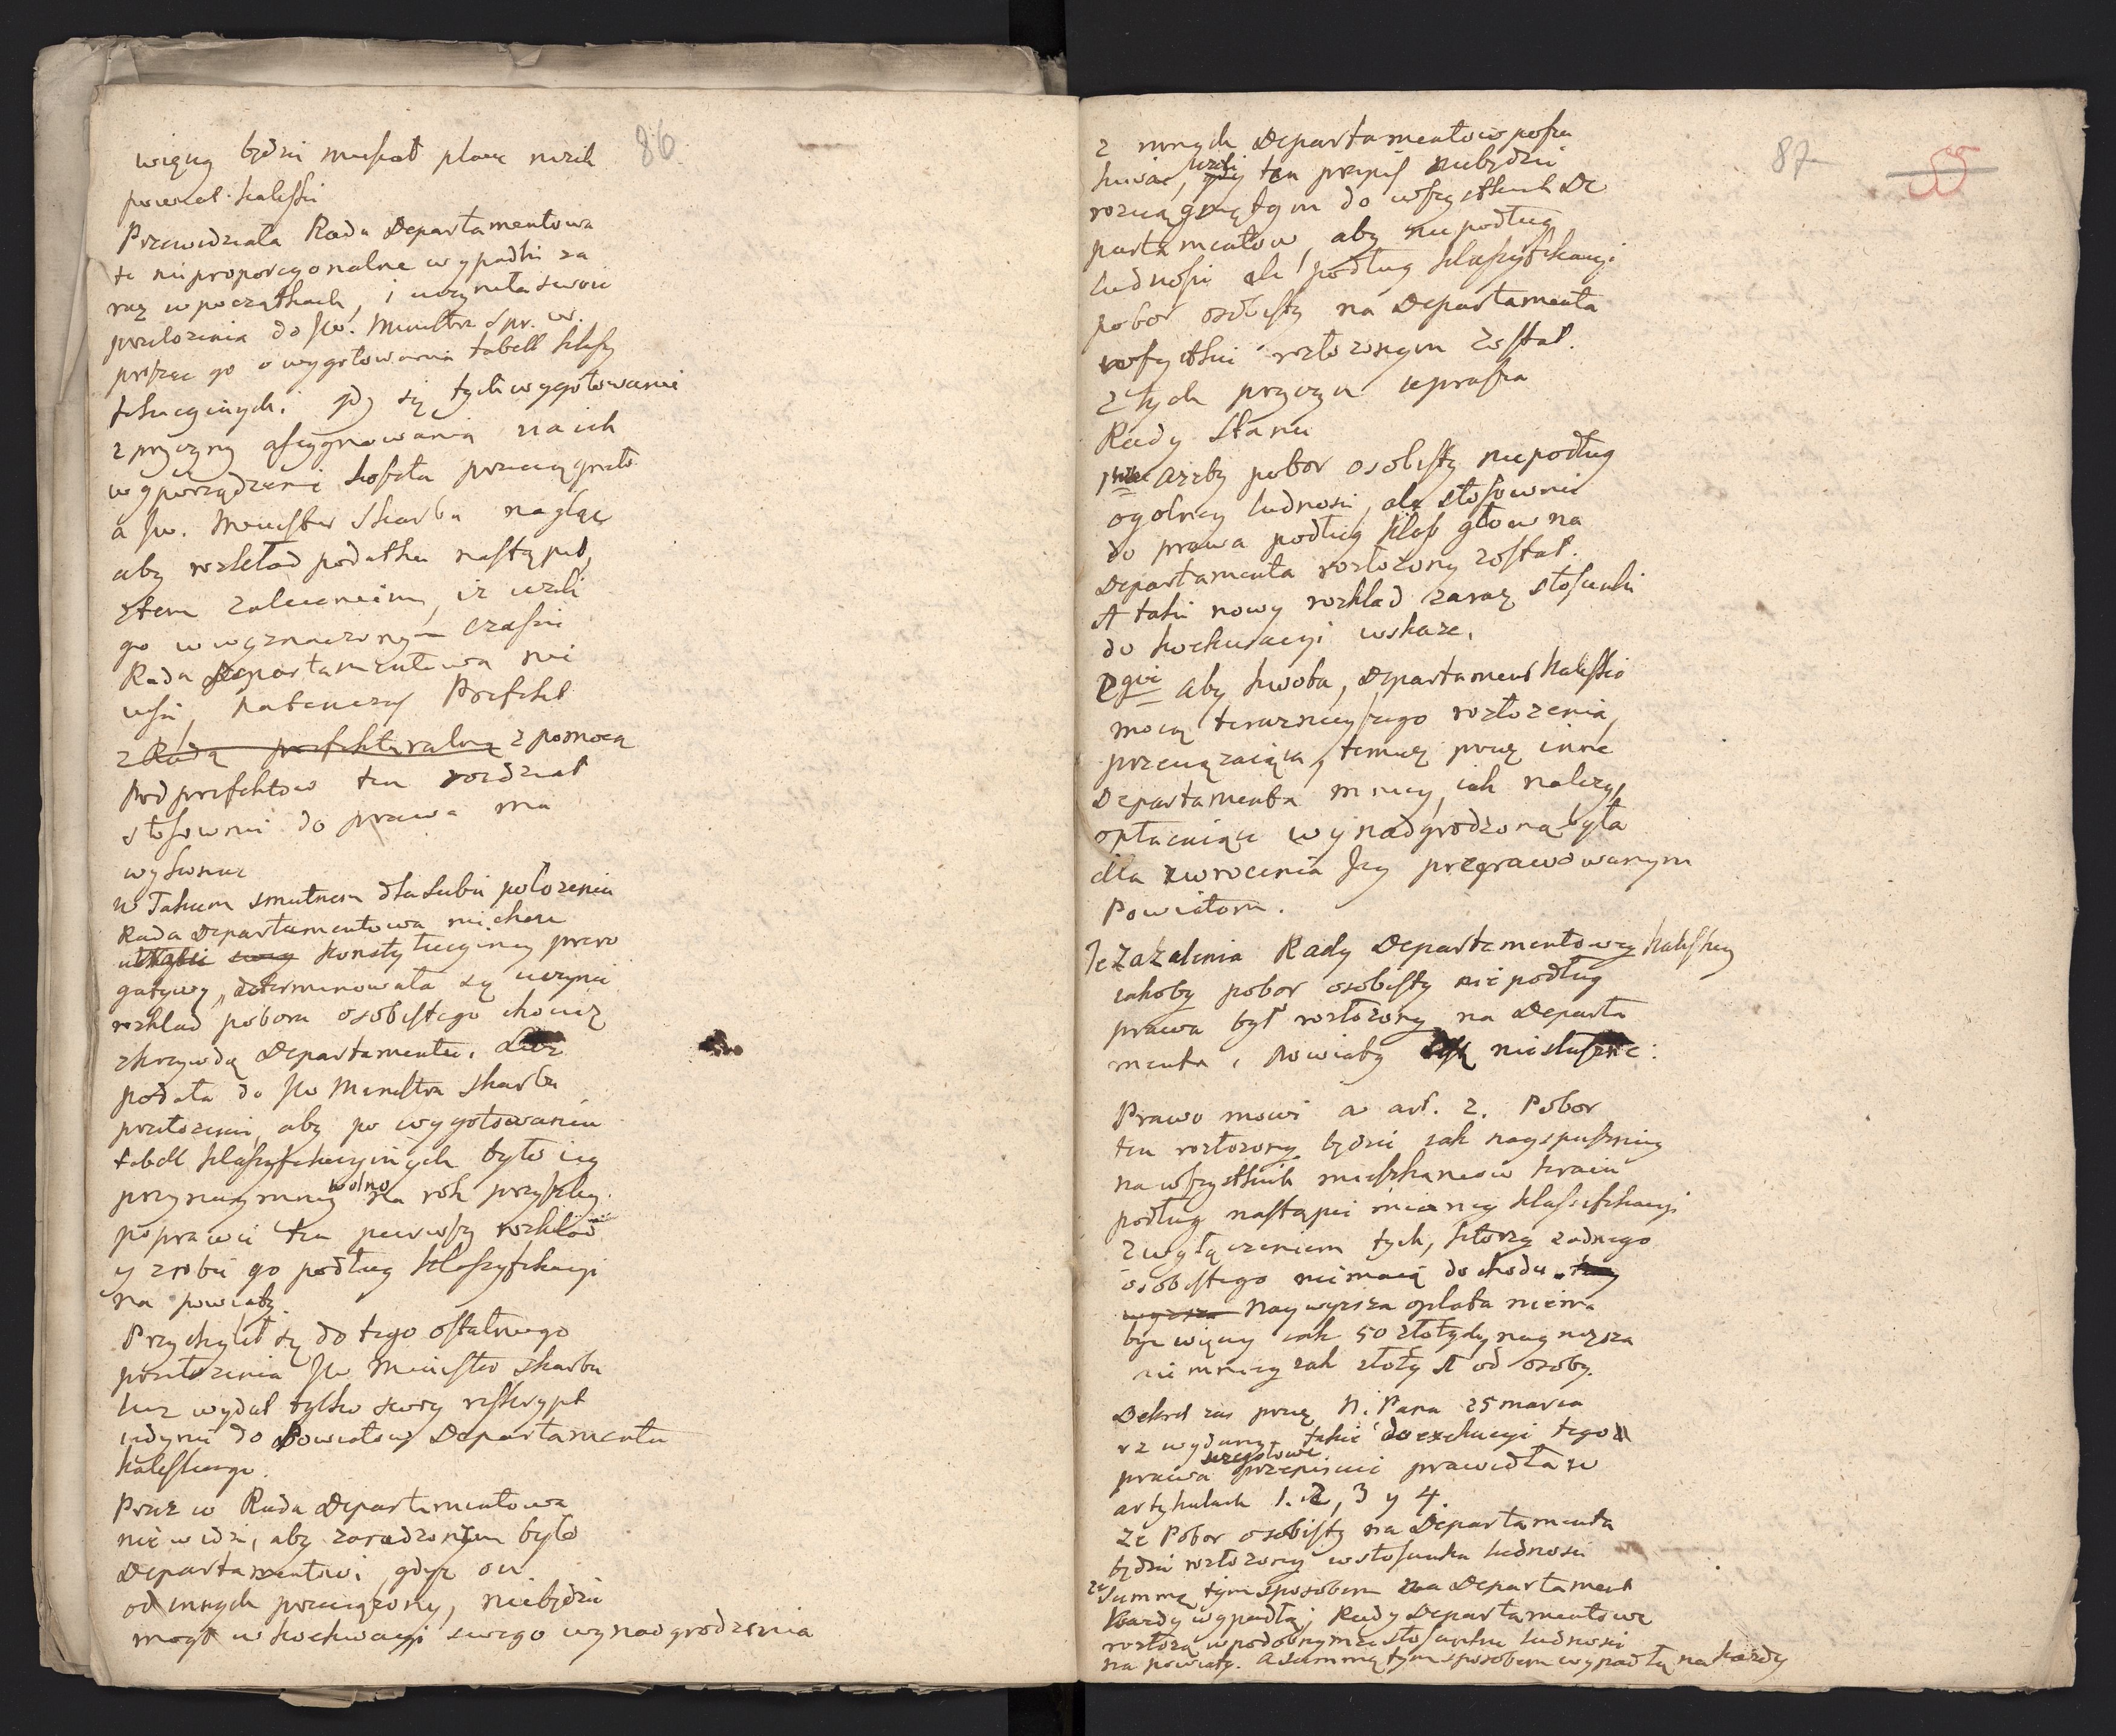 86
więcy będzi musiał płacić niżeli
powiat Kaliski
Przewidziała Rada Departamentowa
te nieproporcyonalne wypadki za
raz w początkach, i uczyniła swoie
przełożenia do JW. Ministra Spr. W.
prosząc go o wygotowanie tabell klassy
fikacyinych. gdy się tych wygotowanie
z przyczyny assygnowania na ich
wyporządzenie koszta przeciągneło
a JW. Minister Skarbu nagląc
aby rozkład podatku nastąpił,
z tem zaleceniem, iż ieżeli
go w wyznaczonym czasie
Rada Departamentowa nie
uści, natenczas Prefekt
z Radą prefekturalną z pomocą
Podprefektow ten rozdział
stosownie do prawa ma
wykonać
W Takiem smutnem dla siebie położeniu
Rada Departamentowa nie chcąc
konstytucyiney prero
gatywy, determinowała się uczynić
rozkład poboru osobistego chociaż
z krzywdą Departamentu. Lecz
podała do JW Ministra Skarbu
przełożenie, aby po wygotowaniu
tabell klassyfikacyinych było iey
przynaymniey wolno na rok przyszły
poprawić ten pierwszy rozkład
y zrobić go podług klassyfikacyi
na powiaty.
Przychylił się do tego ostatniego
przełożenia JW Minister Skarbu
lecz wydał tylko swoy reskrypt
iedynie do Powiatow Departamentu
Kaliskiego.
Przez co Rada Departamentowa
nie widzi, aby zaradzonem było
Departamentowi, gdyż on
od innych przeciążony, niebędzie
mogł w kochwacyi swego wynadgrodzenia
87
55
z innych Departamentow poszu
kiwać, ieżeli ten przepis niebędzie
rozciągniętym do wszystkich De
partamentow, aby nie podług
ludności ale podług klassyfikacyi
pobor osobisty na Departamenta
wszystkie rozłożonym został.
Z tych przyczyn uprasza
Rady Stanu
1mo ażeby pobor osobisty nie podług
ogolney ludności, ale stosownie
do prawa podług klass głow na
Departamenta rozłożony został.
A taki nowy rozkład zaraz stosunki
do kochwacyi wskaże.
2gie aby kwota, Departament Kaliski
mocą teraznieyszego rozłożenia
przeciążaiąca, temuż przez inne
Departamenta mniey, iak należy,
opłacaiące wynadgrodzoną była
dla zwrocenia Jey pregrawowanym
Powiatom.
Te zażalenia Rady Departamentowey Kaliskiey
iakoby pobor osobisty nie podług
prawa był rozłożony na Departa
menta i Powiaty są niesłuszne:
Prawo mowi w art. 2. Pobor
ten rozłożony będzie iak nayspuszniey
na wszystkich mieszkancow kraiu
podług nastąpić maiącey klassyfikacyi
z wyłączeniem tych, ktorzy żadnego
osobistego niemaią dochodu.
wyższa Naywyższa opłata niema
być więcey iak 50 złotych, nayniższa
nie mniey iak złoty 1 od osoby.
Dekret zas przez N. Pana 25 marca
rz wydany, takie do exekucyi tego
prawa szczegołowe przepisuie prawidła w
artykułach 1. 2, 3 y 4.
Ze Pobor osobisty na Departamenta
będzie rozłożony w stosunku ludności
ze Summę tym sposobem na Departament
każdy wypadłą; Rady Departamentowe
rozłożą w podobnymże stosunku ludności
na powiaty. A summę tym sposobem wypadłą na każdy